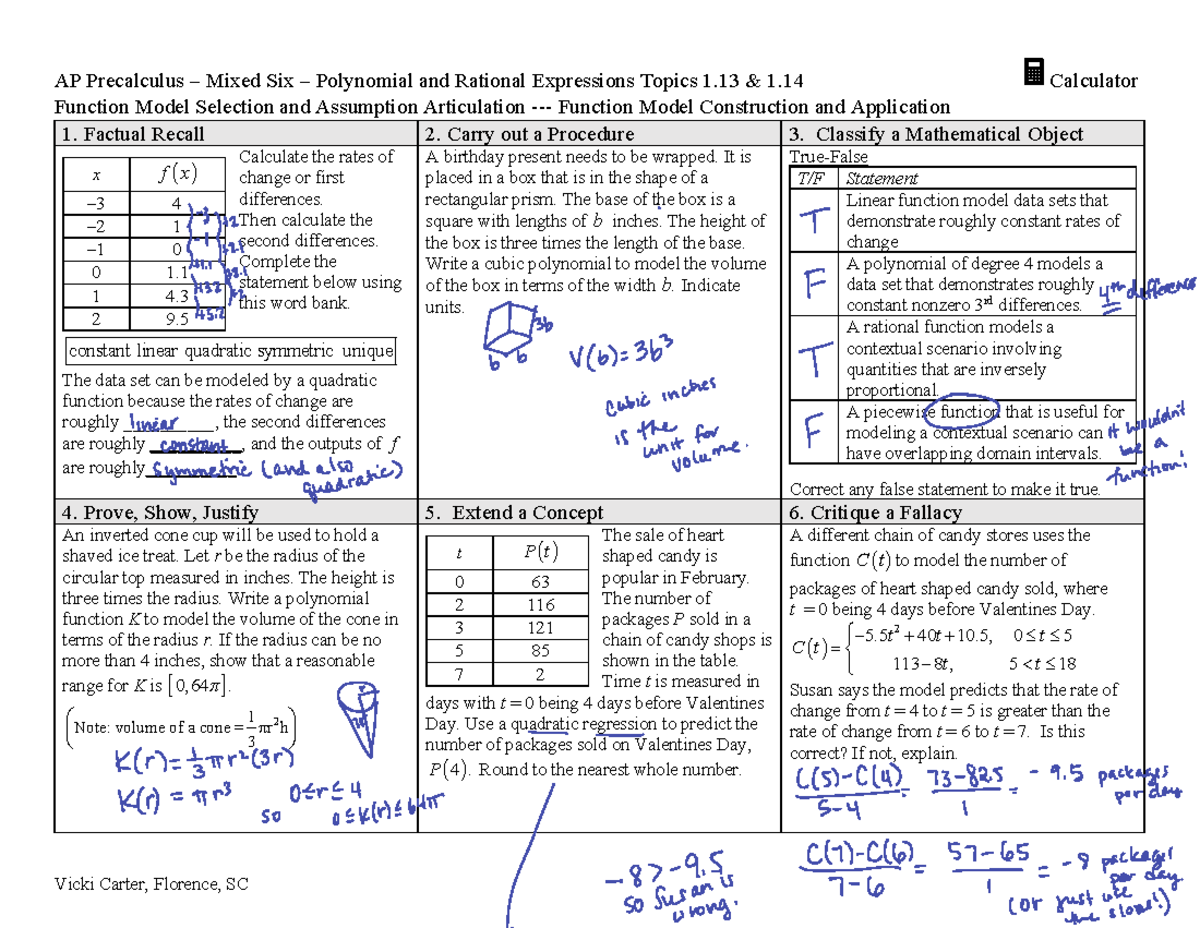 AP Precalculus – Mixed Six – Polynomial and Rational Expressions Topics 1.13 & 1.14
Calculator
Function Model Selection and Assumption Articulation --- Function Model Construction and Application
1. Factual Recall
x f(x)
–3 4
–2 1
–1 0
0 1.1
1 4.3
2 9.5
-3
-1
+1.1
+3.2
+5.2
Calculate the rates of
change or first
differences.
Then calculate the
second differences.
Complete the
statement below using
this word bank.
constant linear quadratic symmetric unique
The data set can be modeled by a quadratic
function because the rates of change are
roughly linear, the second differences
are roughly constant, and the outputs of f
are roughly symmetric (and also
quadratic)
2. Carry out a Procedure
A birthday present needs to be wrapped. It is
placed in a box that is in the shape of a
rectangular prism. The base of the box is a
square with lengths of b inches. The height of
the box is three times the length of the base.
Write a cubic polynomial to model the volume
of the box in terms of the width b. Indicate
units.
3b
b b
V(b)=3b³
cubic inches
is the
unit for
volume.
3. Classify a Mathematical Object
True-False
T/F Statement
T Linear function model data sets that
demonstrate roughly constant rates of
change
F A polynomial of degree 4 models a
data set that demonstrates roughly
constant nonzero 3rd differences.
4th difference
T A rational function models a
contextual scenario involving
quantities that are inversely
proportional.
F A piecewise function that is useful for
modeling a contextual scenario can
have overlapping domain intervals.
it wouldn't
be a
function!
Correct any false statement to make it true.
4. Prove, Show, Justify
An inverted cone cup will be used to hold a
shaved ice treat. Let r be the radius of the
circular top measured in inches. The height is
three times the radius. Write a polynomial
function K to model the volume of the cone in
terms of the radius r. If the radius can be no
more than 4 inches, show that a reasonable
range for K is [0,64π].
(Note: volume of a cone = 1/3 πr²h)
K(r) = 1/3 πr²(3r)
K(r) = πr³
so 0≤r≤4
0≤K(r)≤64π
5. Extend a Concept
t P(t)
0 63
2 116
3 121
5 85
7 2
The sale of heart
shaped candy is
popular in February.
The number of
packages P sold in a
chain of candy shops is
shown in the table.
Time t is measured in
days with t = 0 being 4 days before Valentines
Day. Use a quadratic regression to predict the
number of packages sold on Valentines Day,
P(4). Round to the nearest whole number.
6. Critique a Fallacy
A different chain of candy stores uses the
function C(t) to model the number of
packages of heart shaped candy sold, where
t = 0 being 4 days before Valentines Day.
C(t) = { –5.5t² + 40t + 10.5, 0 ≤ t ≤ 5
113 – 8t, 5 < t ≤ 18
Susan says the model predicts that the rate of
change from t = 4 to t = 5 is greater than the
rate of change from t = 6 to t = 7. Is this
correct? If not, explain.
C(5)-C(4) / 5-4 = 73-82.5 / 1 = -9.5 packages
per day
C(7)-C(6) / 7-6 = 57-65 / 1 = -8 packages
per day
(or just use
the slope!)
-8 > -9.5
so Susan is
wrong.
Vicki Carter, Florence, SC